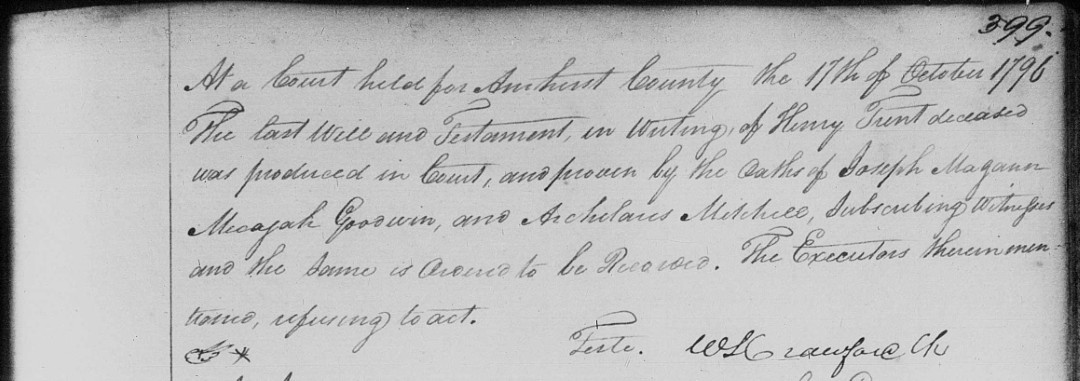 399.
At a Court held for Amherst County the 17th of October 1796
The last Will and Testament, in Writing, of Henry Trent deceased
was produced in Court, and proven by the Oaths of Joseph Magann
Micajah Goodwin, and Archelaus Mitchell, Subscribing Witnesses
and the same is Ordered to be Recorded. The Executors therein men-
tioned, refusing to act.
Teste. WS Crawford Clk